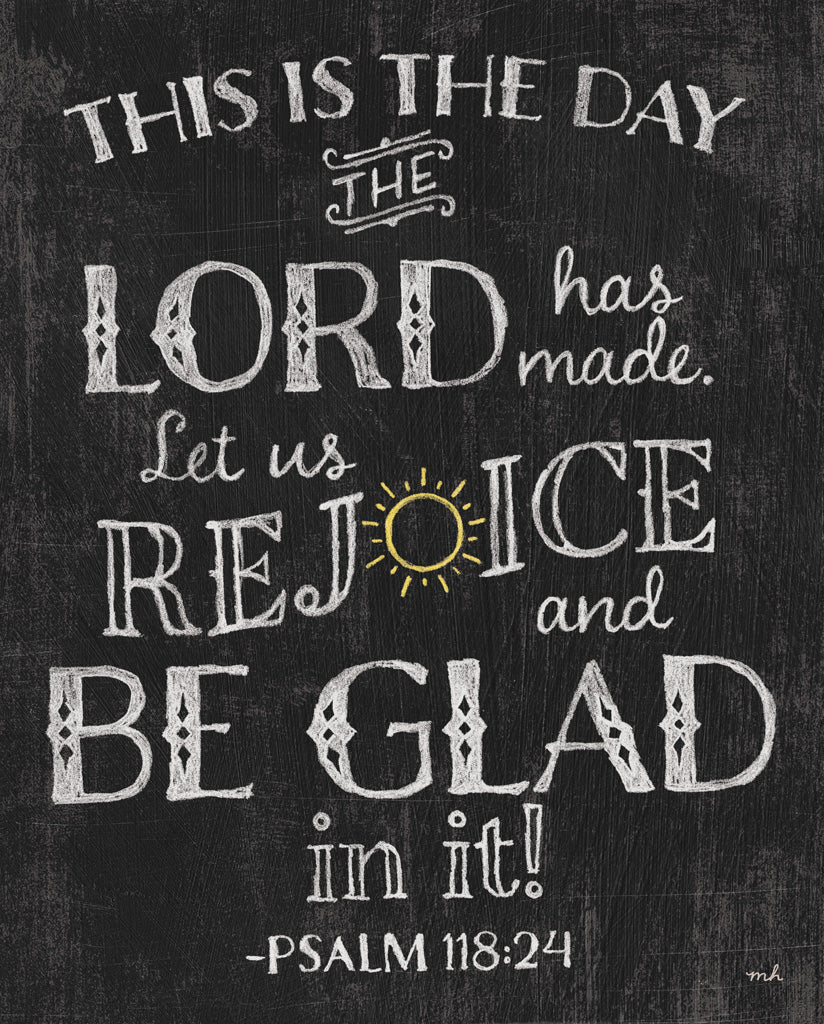 THIS IS THE DAY
THE
LORD has
made.
Let us
REJOICE
and
BE GLAD
in it!
-PSALM 118:24
mh